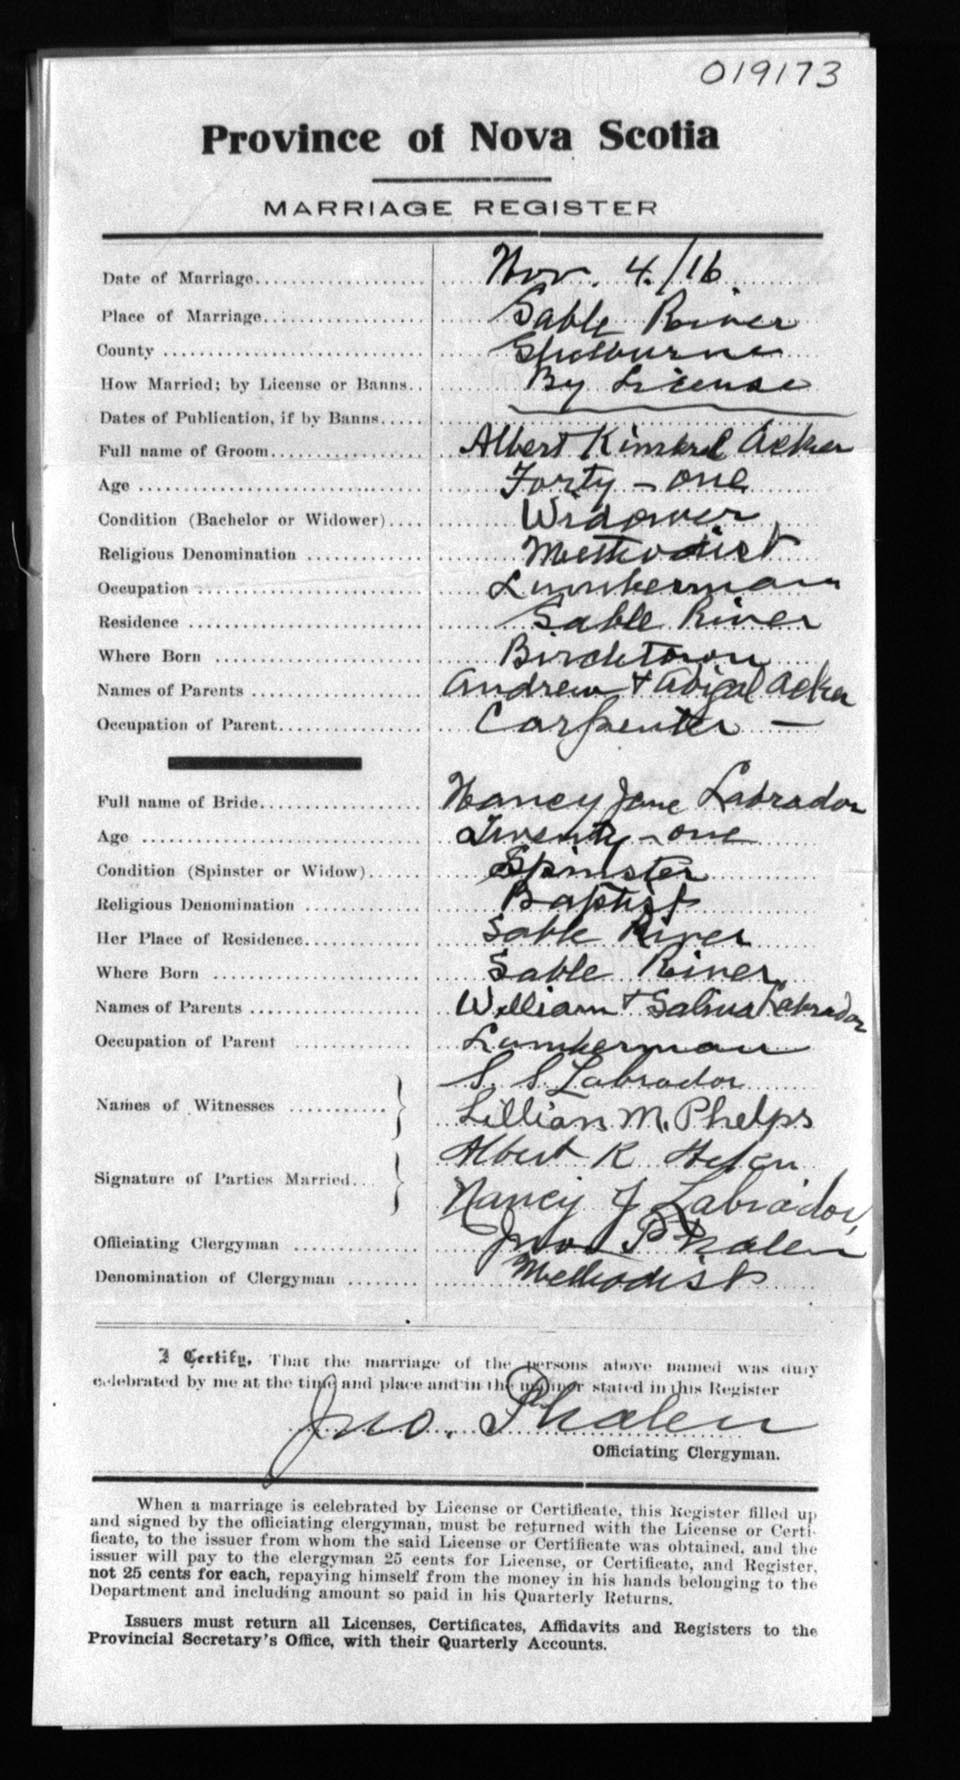 019173
Province of Nova Scotia
MARRIAGE REGISTER
Date of Marriage Nov. 4./16.
Place of Marriage Sable River
County Shelburne
How Married; by License or Banns By License
Dates of Publication, if by Banns
Full name of Groom Albert Acker
Age Forty-one
Condition (Bachelor or Widower) Widower
Religious Denomination Methodist
Occupation Lumberman
Residence Sable River
Where Born Birchtown
Names of Parents Andrew + Abigal Acker
Occupation of Parent Carpenter —
Full name of Bride Nancy Jane Labrador
Age Twenty-one
Condition (Spinster or Widow) Spinster
Religious Denomination Baptist
Her Place of Residence Sable River
Where Born Sable River
Names of Parents William + Salina Labrador
Occupation of Parent Lumberman
Names of Witnesses } S. S. Labrador
Lillian M. Phelps
Signature of Parties Married } Albert K
Nancy J Labrador
Officiating Clergyman Jno. Phalen
Denomination of Clergyman Methodist
I Certify, That the marriage of the persons above named was duly
celebrated by me at the time and place and in the manner stated in this Register
Jno. Phalen
Officiating Clergyman.
When a marriage is celebrated by License or Certificate, this Register filled up
and signed by the officiating clergyman, must be returned with the License or Certi-
ficate, to the issuer from whom the said License or Certificate was obtained, and the
issuer will pay to the clergyman 25 cents for License, or Certificate, and Register,
not 25 cents for each, repaying himself from the money in his hands belonging to the
Department and including amount so paid in his Quarterly Returns.
Issuers must return all Licenses, Certificates, Affidavits and Registers to the
Provincial Secretary's Office, with their Quarterly Accounts.